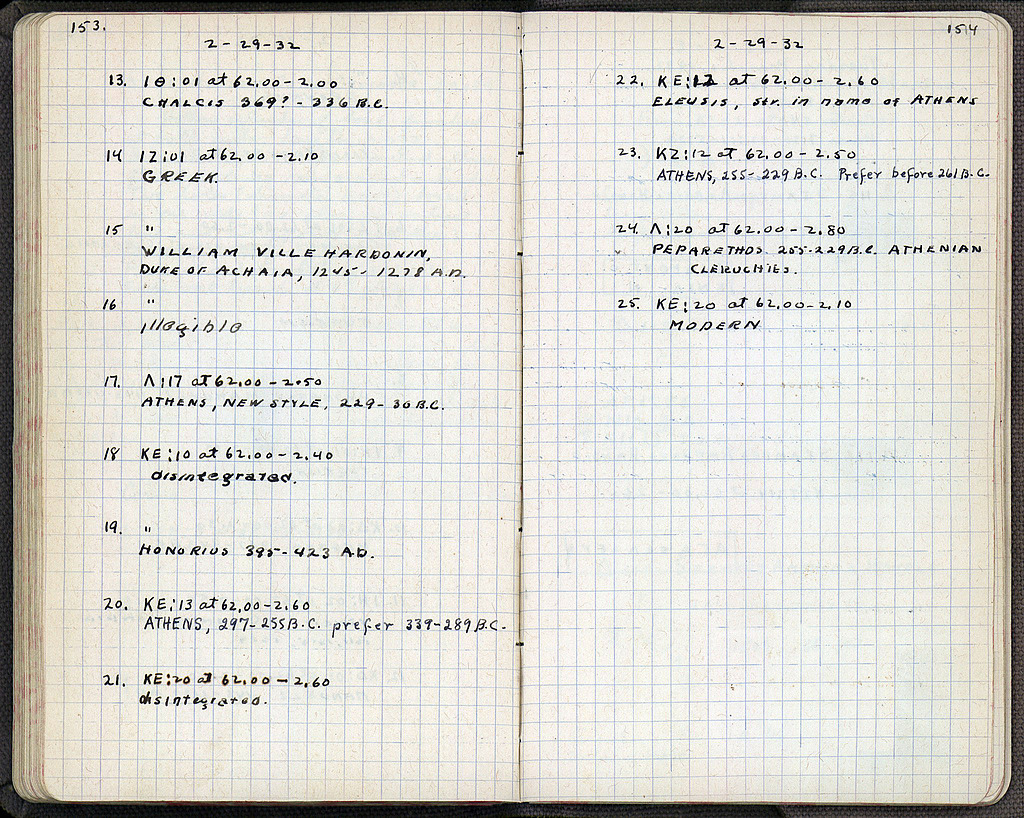 153.
2-29-32
13. ΙΘ:01 at 62.00-2.00
CHALCIS 369?-336 B.C.
14 12:01 at 62.00-2.10
GREEK.
15 "
WILLIAM VILLE HARDONIN,
DUKE OF ACHAIA, 1245-1278 A.D.
16 "
illegible
17. Λ:17 at 62.00-2.50
ATHENS, NEW STYLE, 229-30 B.C.
18 KE:10 at 62.00-2.40
disintegrated.
19. "
HONORIUS 395-423 A.D.
20. KE:13 at 62.00-2.60
ATHENS, 297-255 B.C. prefer 339-289 B.C.
21. KE:20 at 62.00-2.60
disintegrated.
154
2-29-32
22. KE:12 at 62.00-2.60
ELEUSIS, str. in name of ATHENS
23. KZ:12 at 62.00-2.50
ATHENS, 255-229 B.C. Prefer before 261 B.C.
24. Λ:20 at 62.00-2.80
PEPARETHOS. 255-229 B.C. ATHENIAN
CLERUCHIES.
25. KE:20 at 62.00-2.10
MODERN